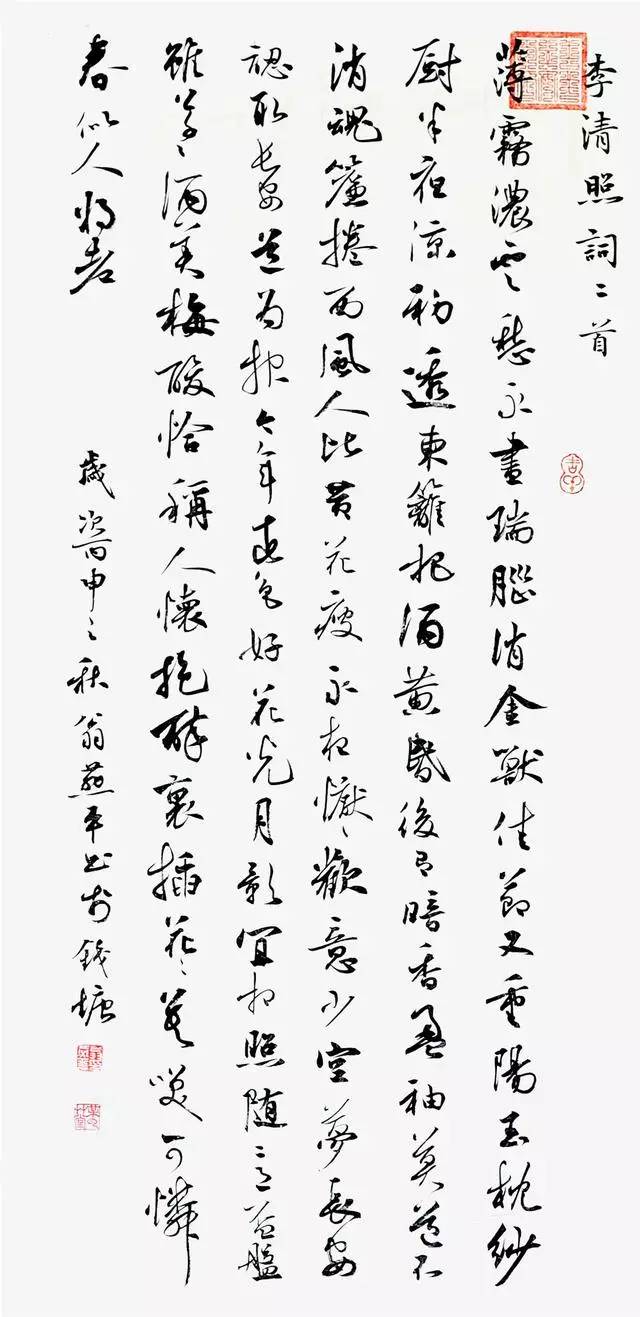 李清照詞二首
薄霧濃雲愁永晝瑞腦消金獸佳節又重陽玉枕紗
厨半夜涼初透東籬把酒黃昏後有暗香盈袖莫道不
消魂簾捲西風人比黃花瘦永夜懨々歡意少空夢長安
認取長安道為報今年春色好花光月影宜相照随意盃盤
雖草々酒美梅酸恰稱人懷抱醉裏插花々莫笑可憐
春似人將老
歲申之秋翁燕平書於錢塘